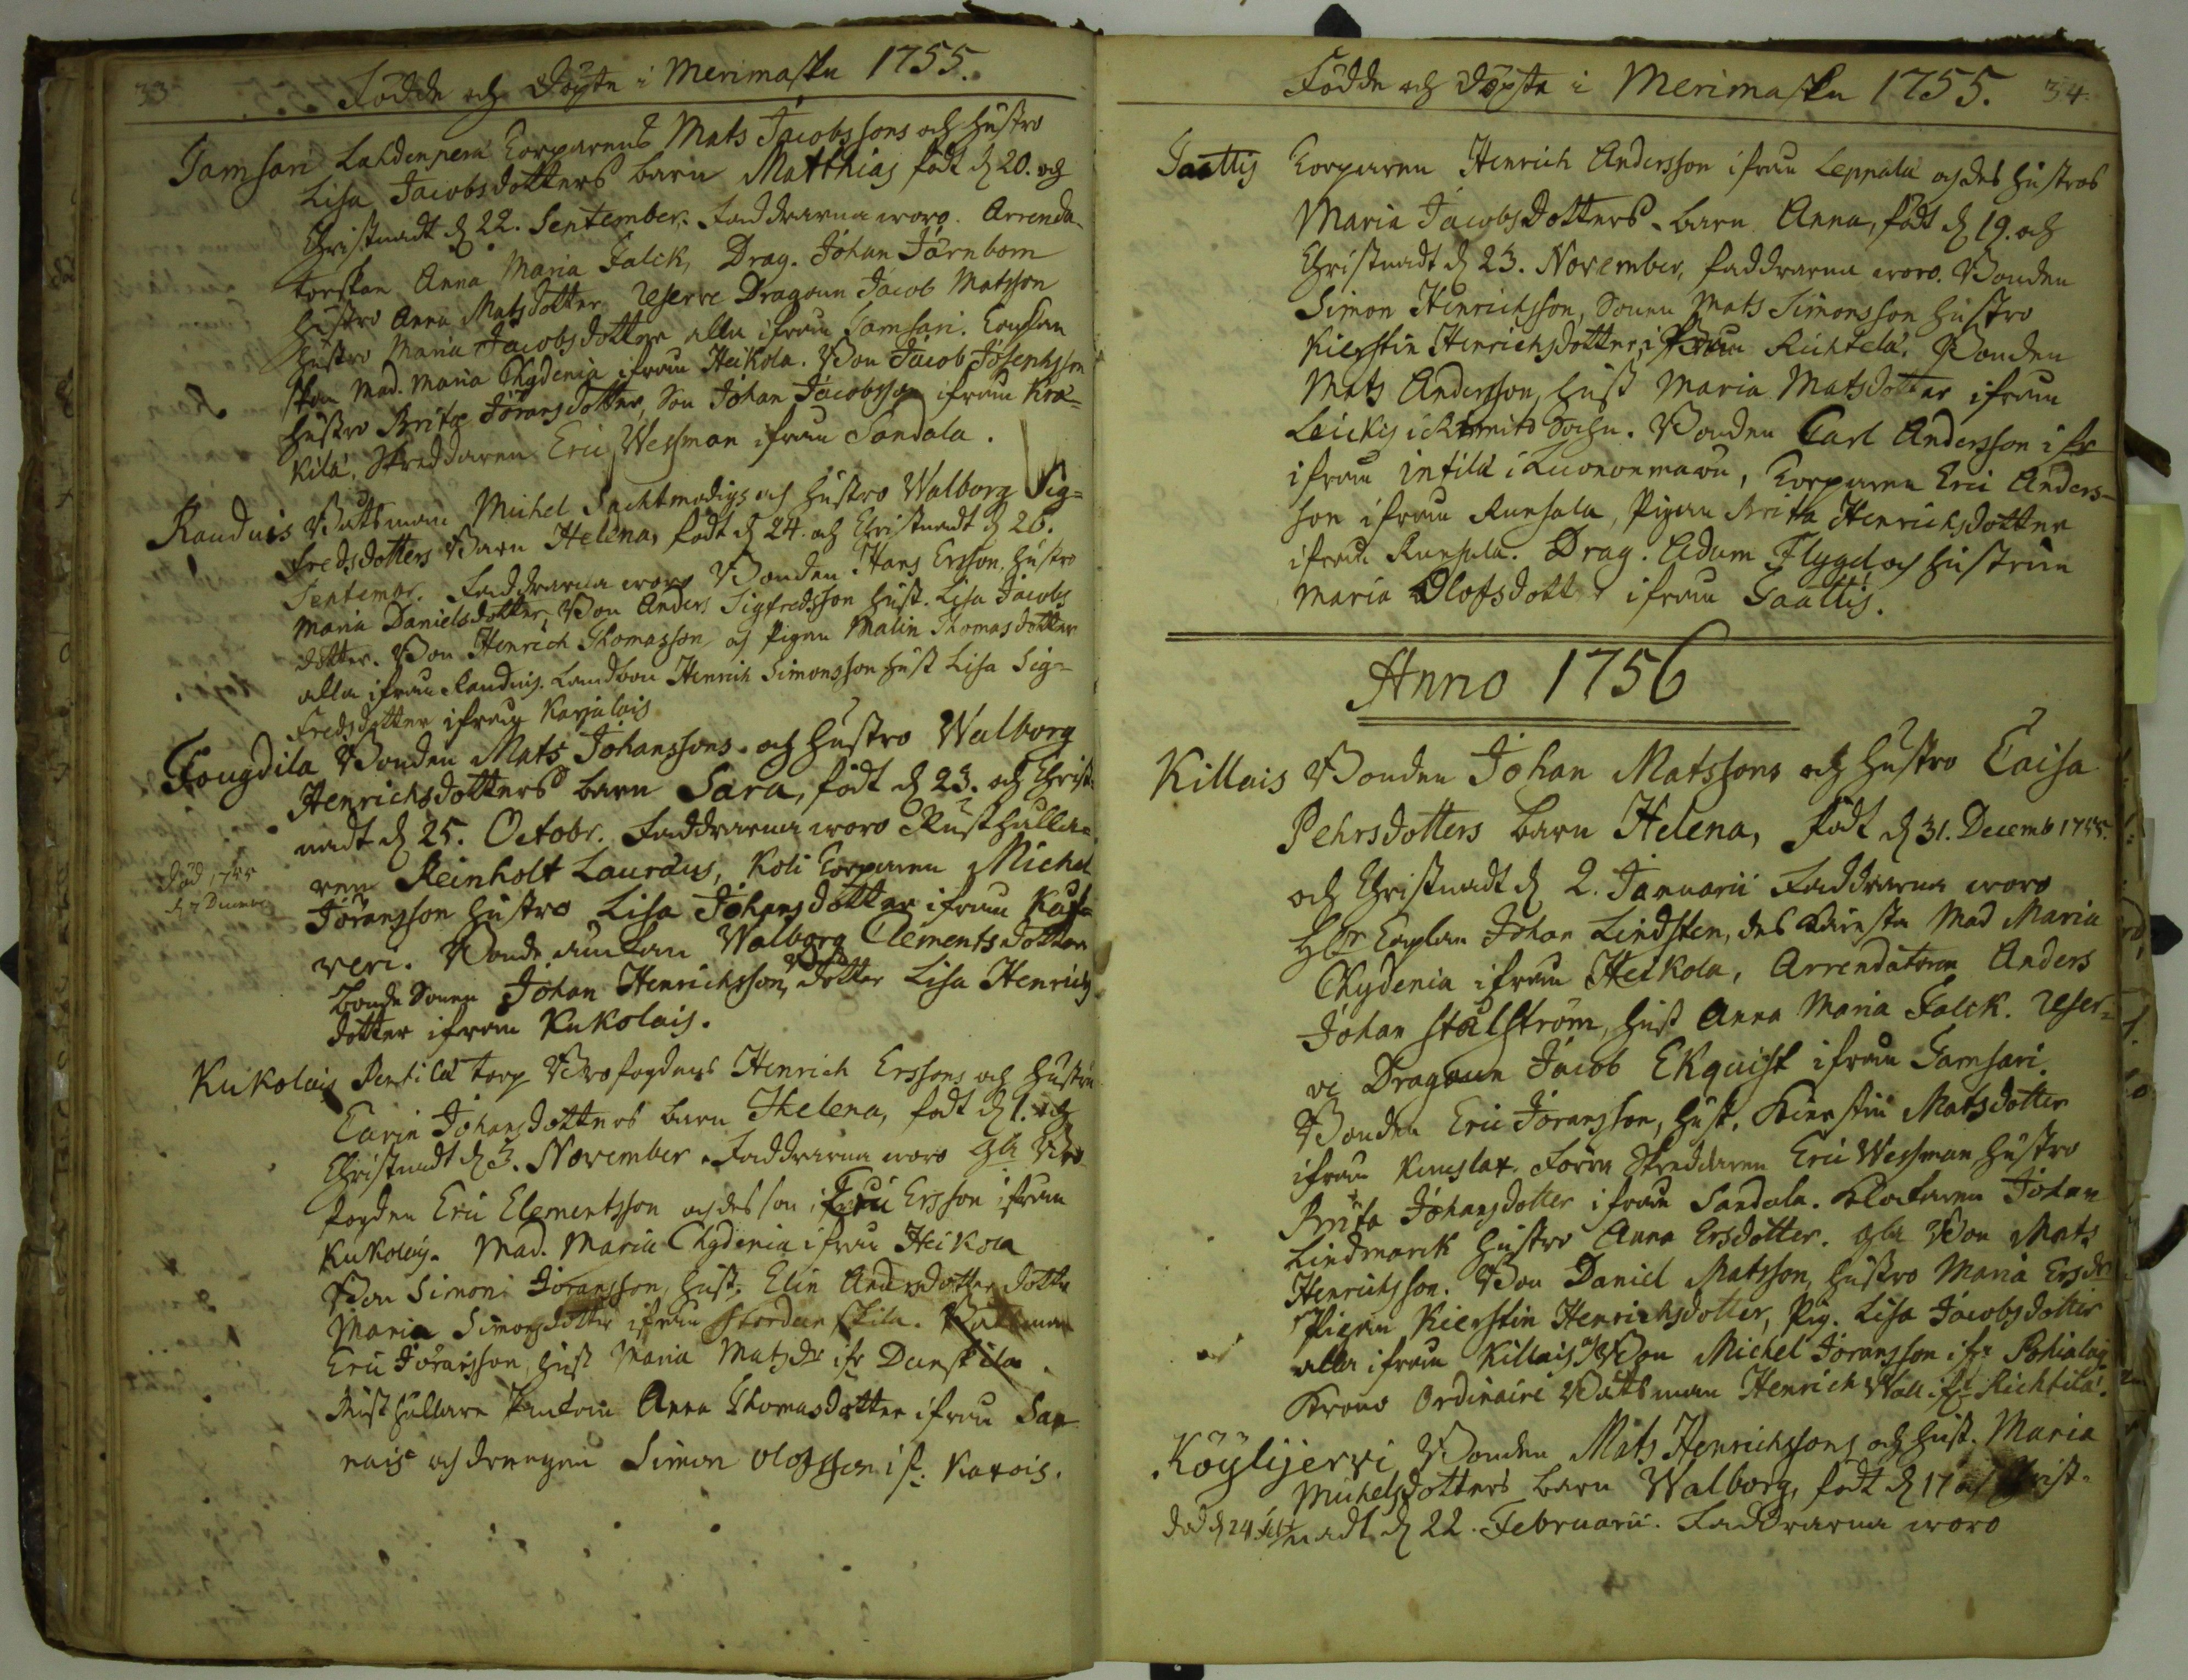 33
Födde och Döpte i Merimasku 1755.
Jamsari Lahdenperä Torparens Mats Jacobssons och hustro
Lisa Jacobsdotters barn Matthias födt d. 20. och
Christnadt d. 22. September. Faddrarna woro. Arrenda-
torskan Anna Maria Falck, Drag. Johan Järnbom
hustro Anna Matsdotter Reserve Dragoun Jacob Matsson
hustro Maria Jacobsdotter alla ifrån Jamsari. Caplan
skan Mad. Maria Chydenia ifrån Heikola. Bon Jacob Josephsson
hustro Brita Jöransdotter, Son Johan Jacobsson ifrån Krä-
kilä, Skreddaren Eric Wessman ifrån Sandala.
Randuis Båtsman Michel Sachtmodigs och hustro Walborg Sig-
fredsdotters Barn Helena, födt d. 24. och Christnadt d. 26.
Septembr. Faddrarna woro Bonden Hans Ersson, hustro
Maria Danielsdotter, Bon Anders Sigfredsson hust. Lisa Jacobs
dotter. Bon Henrich Thomasson och Pigan Malin Thomasdotter
alla ifrån Randuis. Landbon Henrich Simonsson hust Lisa Sig-
fredsdotter ifrån Karjalais
Fougdila Bonden Mats Johanssons och hustro Walborg
Henrichsdotters barn Sara, födt d. 23. och Christ-
nadt d. 25. Octobr. Faddrarna woro Rusthålla-
ren Reinholt Lauræus, Koli Torparen Michel
död 1755
d. 7 Decemb
Jöransson hustro Lisa Johansdotter ifrån Kaita
veri. Bonde enkan Walborg Clementsdotter
Bonde Sonen Johan Henrichsson, dotter Lisa Henrichs
dotter ifrån Kukolais.
Kukolais Pentilä torp Brofogdens Henrich Erssons och hustru
Carin Johansdotters barn Helena, födt d. 1. och
Christnadt d. 3. November. Faddrarna woro gla Bro-
fogden Eric Clementsson och des son Eric Ersson ifrån
Kukolais. Mad. Maria Chydenia ifrån Heikola
Bon Simon Jöransson, hust. Elin Andersdotter dotter
Maria Simonsdotter ifrån Skordanskila. Båtsman
Eric Jöransson, hust Maria Matsdr ifr Danskila.
Rusthållare Enkan Anna Thomasdotter ifrån San
nais och drengen Simon Olofsson if. Katois.
Födde och Döpte i Merimasku 1755. 34.
Taattis Torparen Henrich Andersson ifrån Leppälä och des hustros
Maria Jacobsdotters barn Anna, födt d. 19. och
Christnadt d. 23. November, faddrarna woro. Bonden
Simon Henrichsson, Sonen Mats Simonsson hustro
Kierstin Henrichsdotter, ifrån Richtelä. Bonden
Mats Andersson, hust Maria Matsdotter ifrån
Leickis i Rimito Sochn. Bonden Carl Andersson ifr
ifrån Intilä i Luononmaan, Torparen Eric Anders-
son ifrån Runsala, Pigan Brita Henrichsdotter
ifrån Runsala. Drag. Adam Flygel och hustrun
Maria Olofsdott ifrån Taattis.
Anno 1756
Killais Bonden Johan Matssons och hustro Caisa
Pehrsdotters barn Helena, födt d. 31. Decemb 1755.
och Christnadt d. 2. Januarii Faddrarna woro
Hr Caplan Johan Lindsten, des Käresta Mad Maria
Chydenia ifrån Heikola, Arrendatoren Anders
Johan Stålström, hust Anna Maria Falck. Reser-
ve Dragoun Jacob Ekquist ifrån Jamsari.
Bonden Eric Jöransson, hust. Kierstin Matsdotter
ifrån Kuuslax. Förra Skreddaren Eric Wessman hustro
Brita Johansdotter ifrån Sandala. Klockaren Johan
Lindmarck hustro Anna Ersdotter. gla Bon Mats
Henrichsson. Bon Daniel Matsson, hustro Maria Ersdr
Pigan Kierstin Henrichsdotter, Pig. Lisa Jacobsdotter
alla ifrån Killais och Bon Michel Jöransson ifr Pohialais
Krono Ordinairi Båtsman Henrich Wall ifr Richtilä.
Köylijervi Bonden Mats Henrichssons och hust. Maria
Michelsdotters barn Walborg, födt d. 17 och Christ-
död d. 24 Feb.
nadt d. 22. Februarii. Faddrarna woro